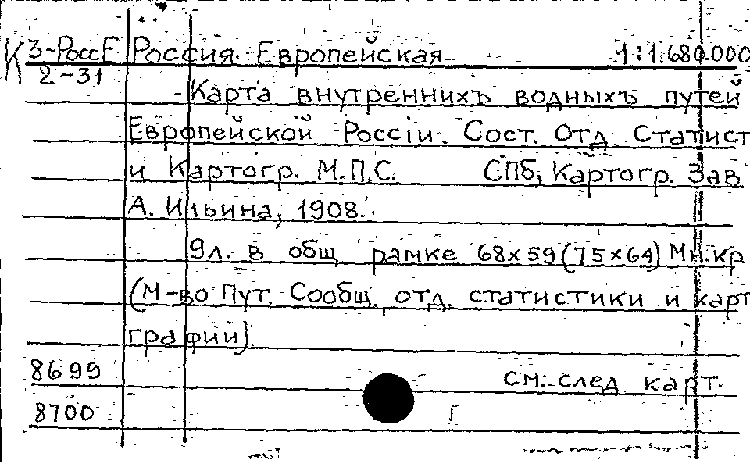 К 3-РоссЕ Россия. Европейская 1:1.680.000
2-31
Карта внутреннихъ водныхъ путей
Европейской Россіи. Сост. Отд. Статист
и Картогр. М.П.С. СПб, Картогр. Зав.
А. Ильина, 1908.
9л. в общ. рамке 68х59(75х64) Мн.кр
(М-во Пут. Сообщ. отд. статистики и карт
графии)
8699 см. след карт.
8700